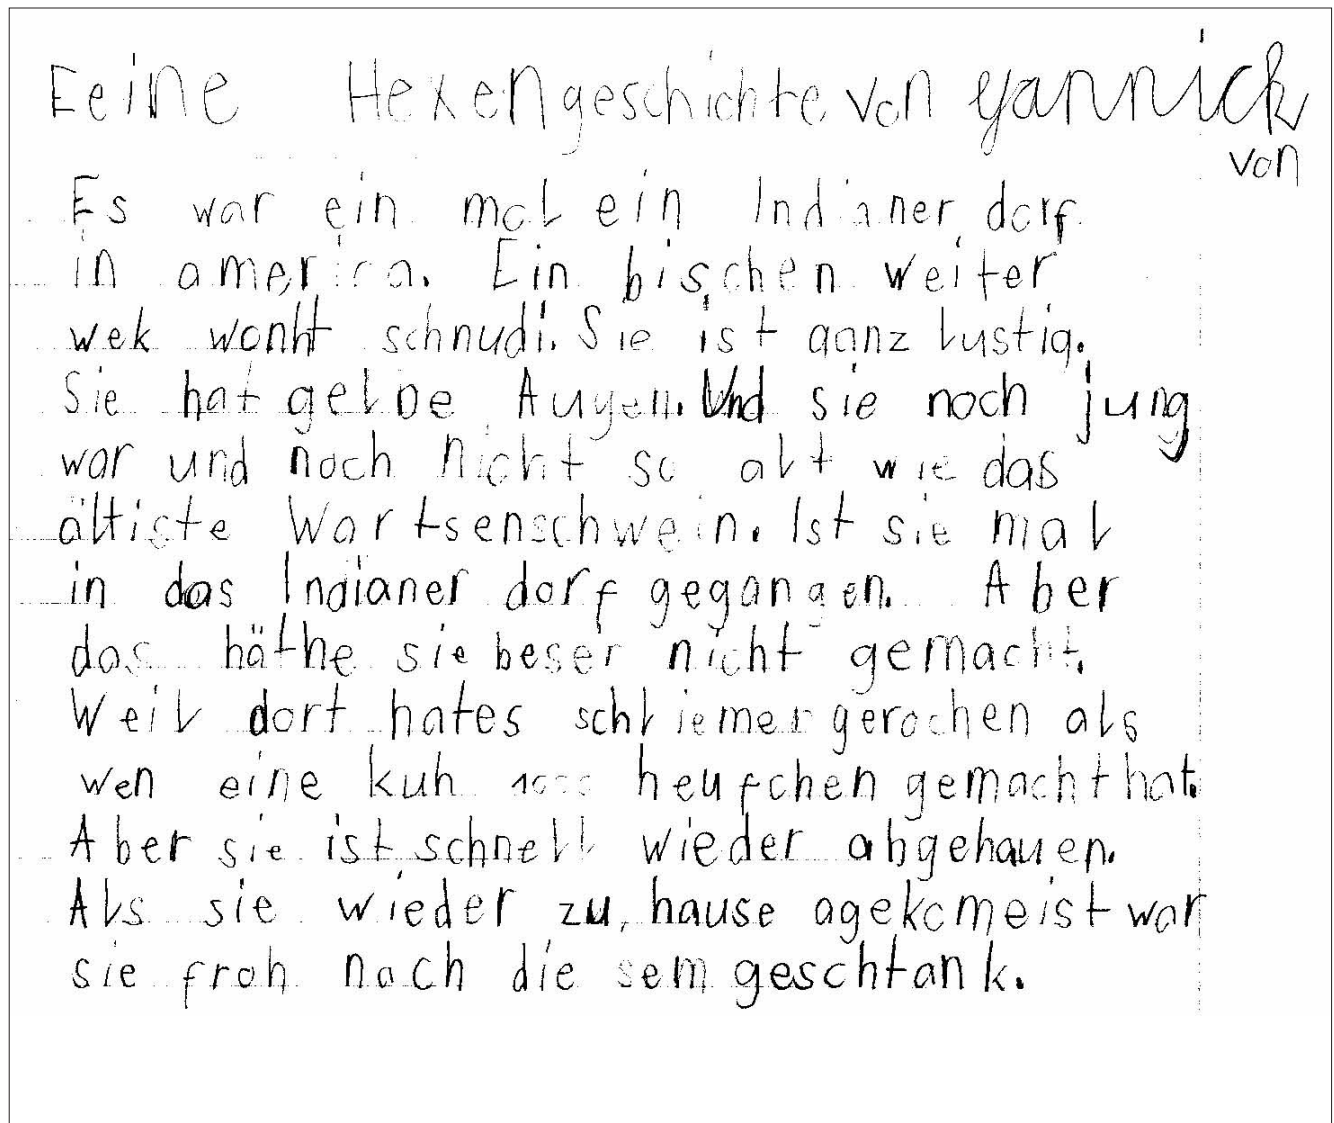 Eeine Hexengeschichte von yannick
von
Es war ein mal ein Indianer dorf
in america. Ein bischen weiter
wek wonht schnudi. Sie ist ganz lustig.
Sie hat gelbe Augen. Und sie noch jung
war und noch nicht so alt wie das
ältiste Wartsenschwein. Ist sie mal
in das Indianer dorf gegangen. Aber
das häthe sie beser nicht gemacht.
Weil dort hates schliemer gerochen als
wen eine kuh 1000 heufchen gemacht hat.
Aber sie ist schnell wieder abgehauen.
Als sie wieder zu hause agekomeist war
sie froh nach die sem geschtank.